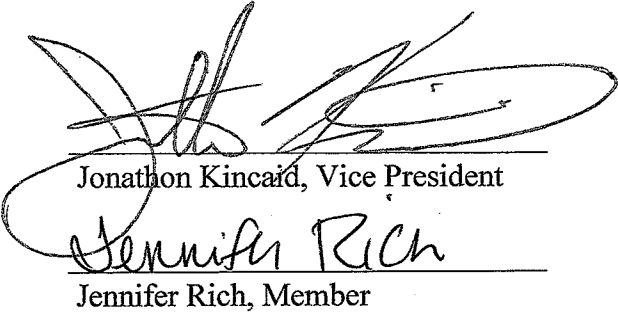 Jonathon Kincaid, Vice President
Jennifer Rich
Jennifer Rich, Member